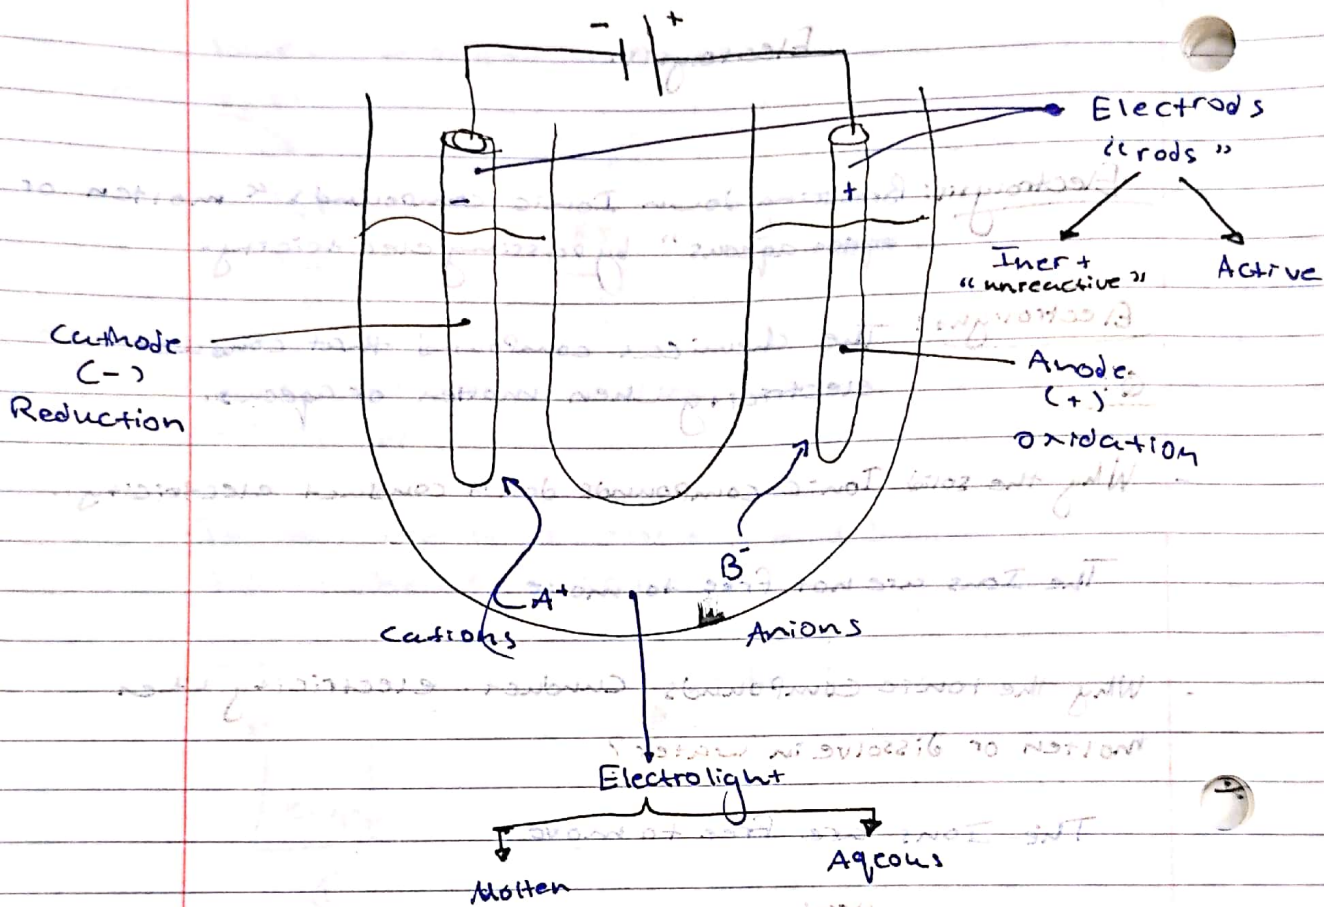 - +
Electrods
"rods"
- +
Inert
"unreactive"
Active
Cathode
(-)
Reduction
Anode
(+)
oxidation
B⁻
A⁺
Cations
Anions
Electrolight
Molten
Aqeous